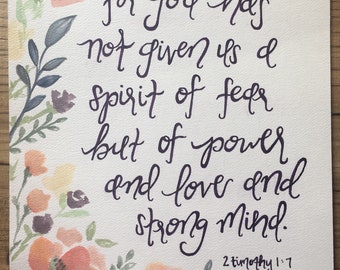 for God has
not given us a
spirit of fear
but of power
and love and
strong mind.
2 timothy 1:7